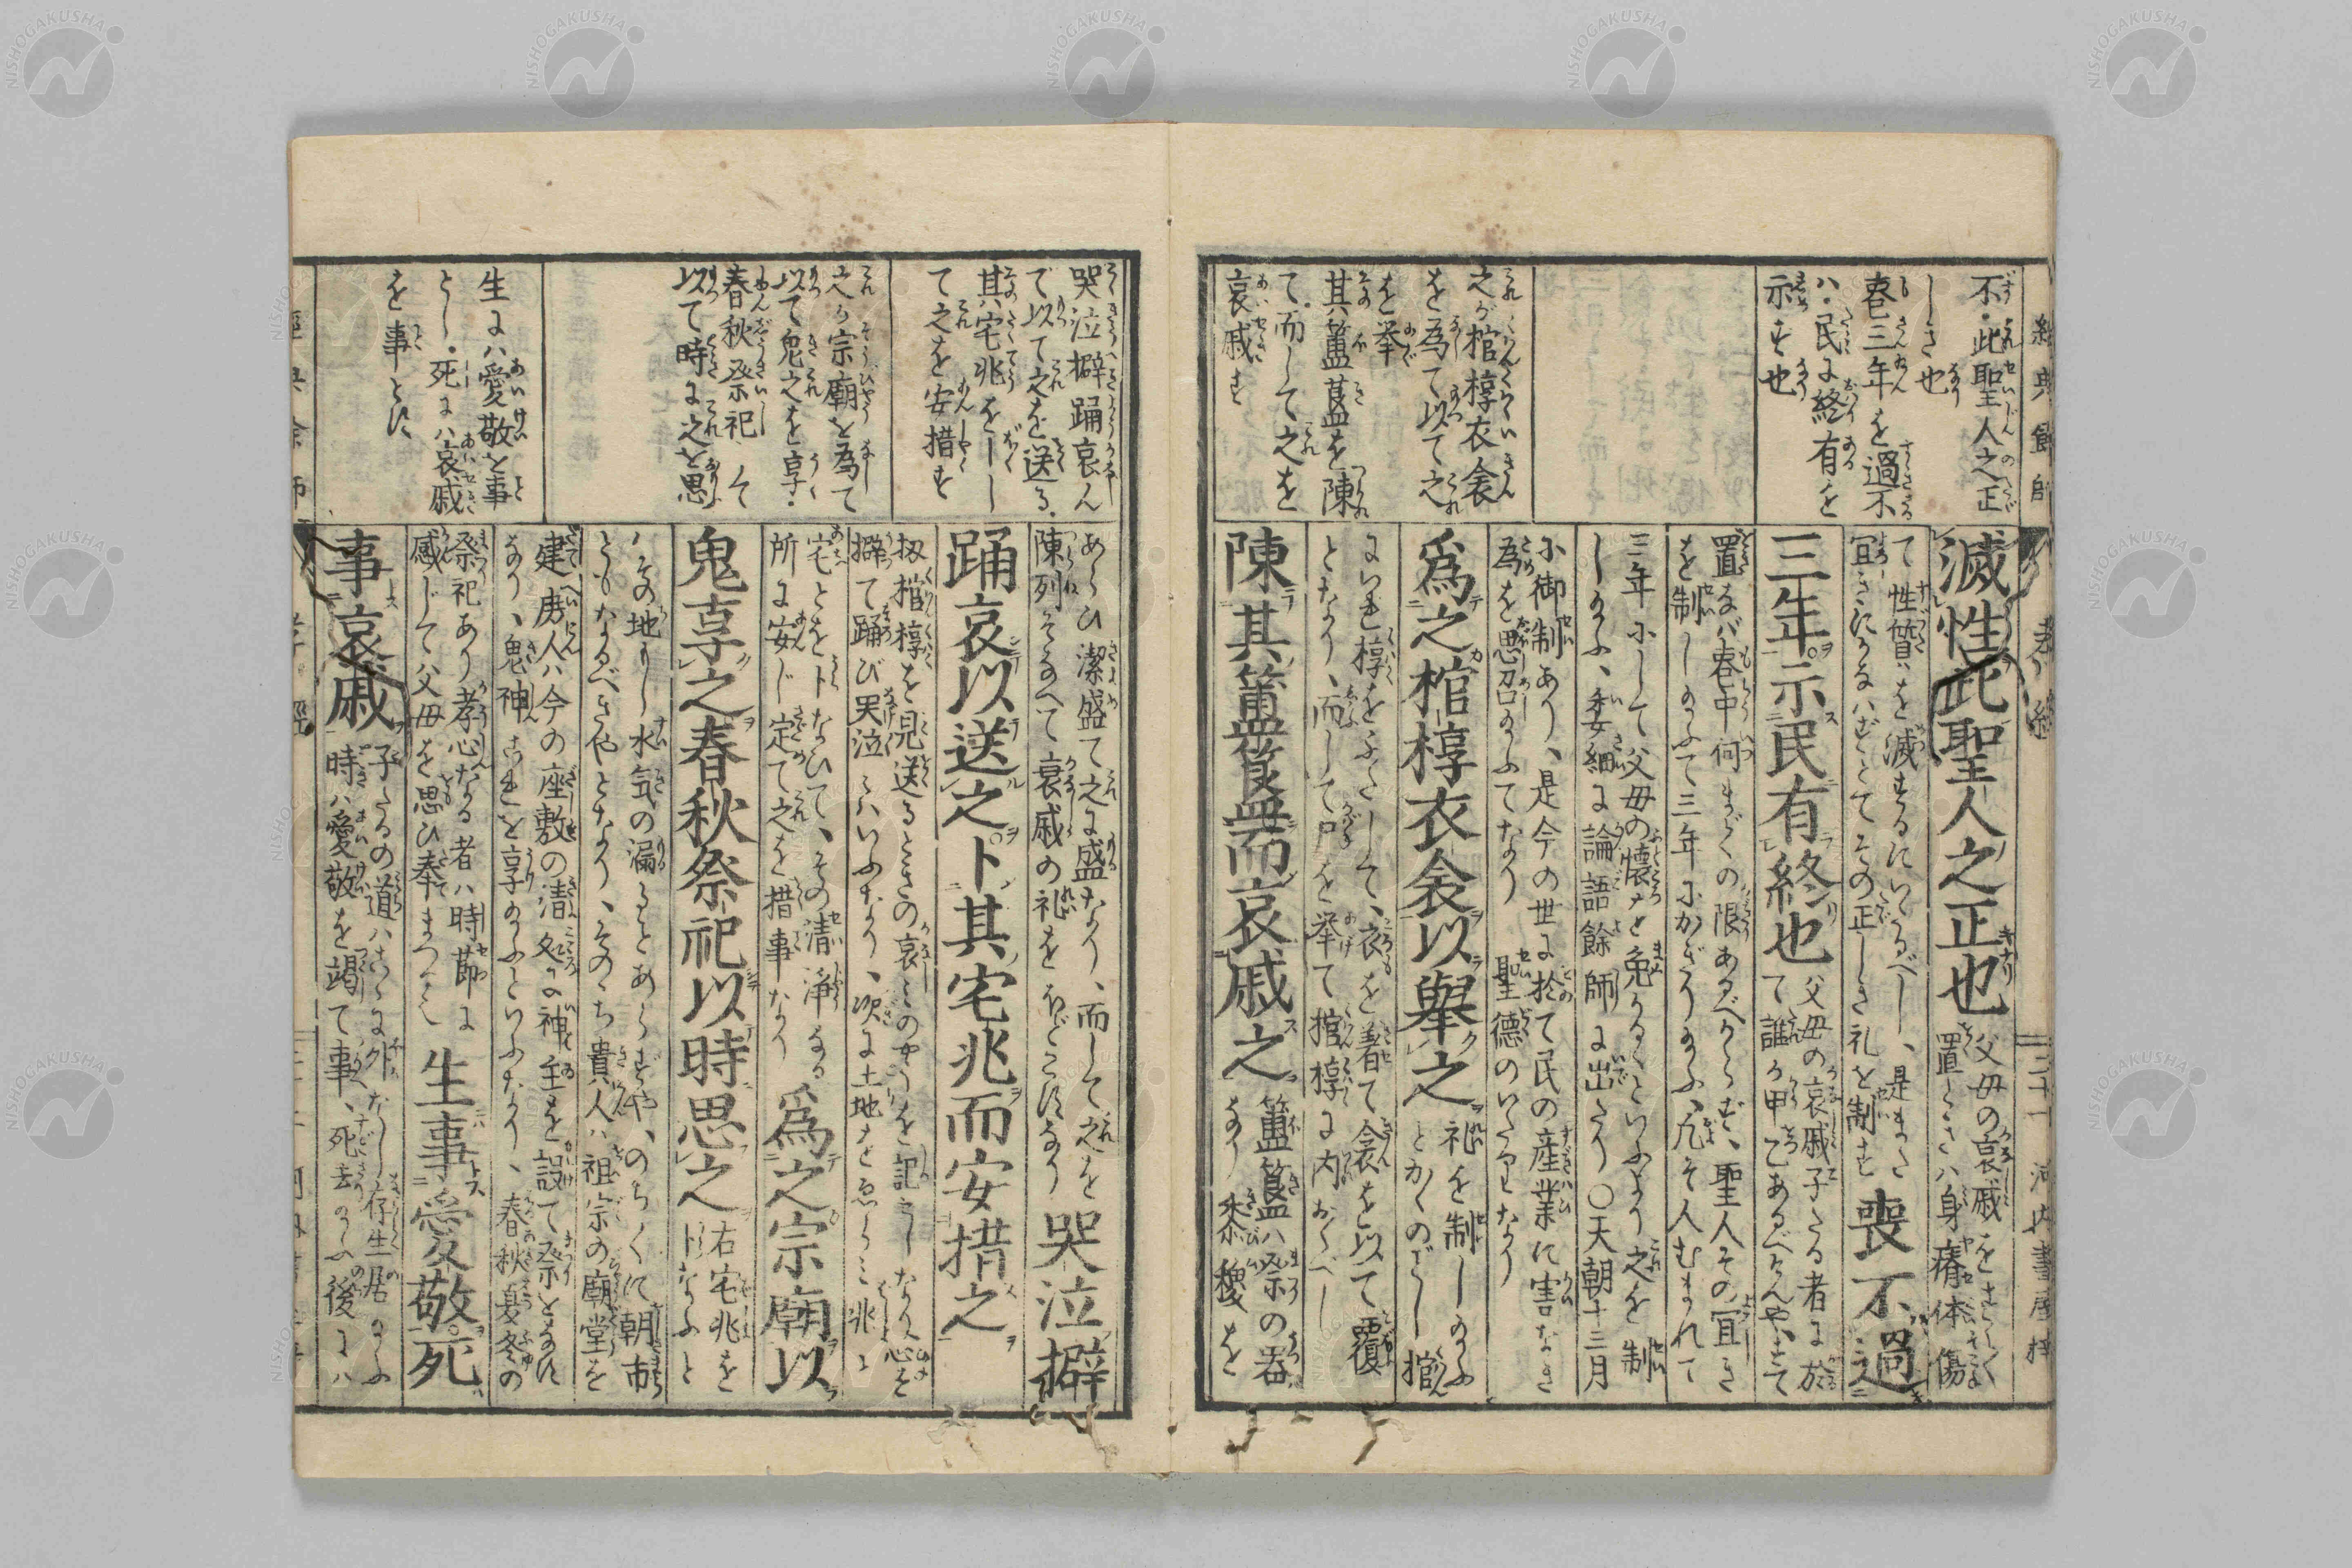 不・此聖人之正
しき也
喪三年を過不
ハ・民に終有を
示す也
之が棺椁衣衾
を為て以て之
を挙
其簠簋を陳
て・而して之を
哀戚す
滅性此聖人之正也
父母の哀戚をすく
置ときハ身瘠体傷
て性質を滅するにいたるべし、是また
宜きにかなハずとてその正しき礼を制す
喪不過
三年示民有終也
父母の哀戚子たる者に於
て誰か甲乙あるべけんや、すて
置なバ喪中何までの限あるべからず、聖人その宜き
を制し給ふて三年にかぎり給ふ、凡そ人むまれて
三年にして父母の懐を免かるゝといふより之を制
し給ふ、委細に論語餘師に出たり○天朝十三月
に御制あり、是今の世に於て民の産業に害なき
為を思召給ふてなり聖徳のいたりなり
為之棺椁衣衾以舉之
礼を制し給ふ
とかくのごとし棺
にいれ椁をふたして、衣を着て衾を以て覆
となり、而して尸を挙て棺椁に内おくべし
陳其簠簋而哀戚之
簠簋ハ祭の器
なり黍稷を
哭泣擗踊哀ん
で以て之を送る・
其宅兆をトし
て之を安措す
之が宗廟を為て
以て鬼之を享・
春秋祭祀して
以て時に之を思
生にハ愛敬を事
とし・死にハ哀戚
を事とす
あらひ潔盛て之に盛なり、而して之を
陳列そなへて哀戚の礼をほどこすなり
哭泣擗
踊哀以送之卜其宅兆而安措之
扨棺椁を見送るときの哀みのやうを記うしなり心を
擗て踊び哭泣とハいふなり、次に土地をゑらミ兆に
宅とをトなひて、その清浄なる
所に安じ定て之を措事なり
為之宗廟以
鬼享之春秋祭祀以時思之
右宅兆を
トなふと
ハその地もし水気の漏るとあらずや、のちくに朝市
ともなるべきやとなり、そのゝち貴人ハ祖宗の廟堂を
建庸人ハ今の座敷の清処に神主を設て祭となす
なり、鬼神これを享給ふといふなり、春秋夏冬の
祭祀あり孝心なる者ハ時節に
感じて父母を思ひ奉てまつる
生事愛敬死
事哀戚
子たるの道ハこゝに外なし存生居ますふ
時ハ愛敬を竭て事、死去のふ後にハ